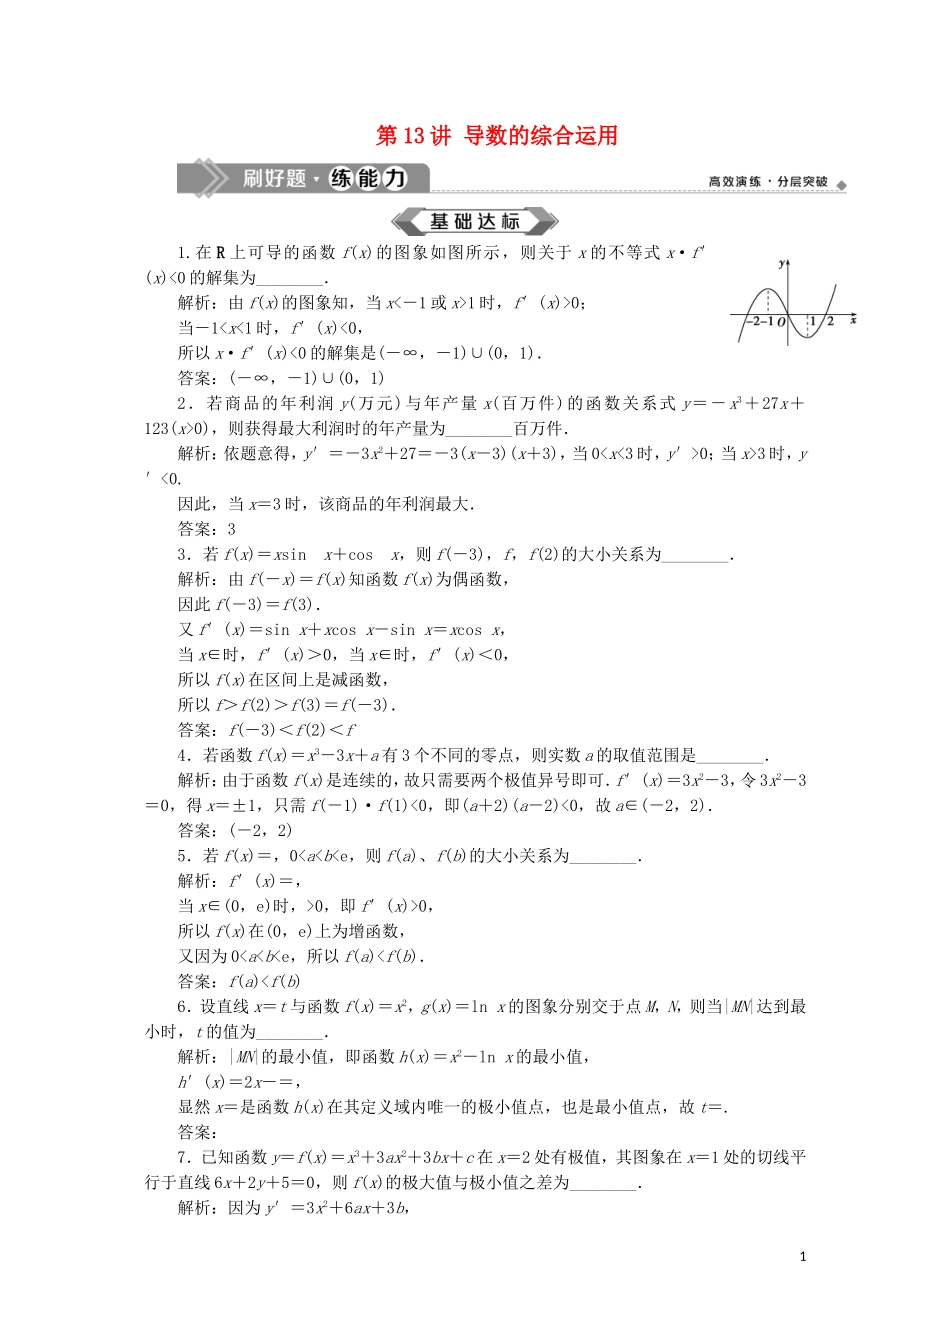 第 13 讲 导数的综合运用
刷好题·练能力
高效演练·分层突破
基础达标
1.在 R 上可导的函数 f(x)的图象如图所示，则关于 x 的不等式 x·f′
(x)<0 的解集为________．
y
－2－1 O 1 2 x
解析：由 f(x)的图象知，当 x<－1 或 x>1 时，f′(x)>0；
当－1<x<1 时，f′(x)<0，
所以 x·f′(x)<0 的解集是(－∞，－1)∪(0，1)．
答案：(－∞，－1)∪(0，1)
2．若商品的年利润 y(万元)与年产量 x(百万件)的函数关系式 y＝－x³＋27x＋
123(x>0)，则获得最大利润时的年产量为________百万件．
解析：依题意得，y′＝－3x²＋27＝－3(x－3)(x＋3)，当 0<x<3 时，y′>0；当 x>3 时，y
′<0.
因此，当 x＝3 时，该商品的年利润最大．
答案：3
3．若 f(x)＝xsin x＋cos x，则 f(－3)，f，f(2)的大小关系为________．
解析：由 f(－x)＝f(x)知函数 f(x)为偶函数，
因此 f(－3)＝f(3)．
又 f′(x)＝sin x＋xcos x－sin x＝xcos x，
当 x∈时，f′(x)＞0，当 x∈时，f′(x)＜0，
所以 f(x)在区间上是减函数，
所以 f＞f(2)＞f(3)＝f(－3)．
答案：f(－3)＜f(2)＜f
4．若函数 f(x)＝x³－3x＋a 有 3 个不同的零点，则实数 a 的取值范围是________．
解析：由于函数 f(x)是连续的，故只需要两个极值异号即可．f′(x)＝3x²－3，令 3x²－3
＝0，得 x＝±1，只需 f(－1)·f(1)<0，即(a＋2)(a－2)<0，故 a∈(－2，2)．
答案：(－2，2)
5．若 f(x)＝，0<a<b<e，则 f(a)、f(b)的大小关系为________．
解析：f′(x)＝，
当 x∈(0，e)时，>0，即 f′(x)>0，
所以 f(x)在(0，e)上为增函数，
又因为 0<a<b<e，所以 f(a)<f(b)．
答案：f(a)<f(b)
6．设直线 x＝t 与函数 f(x)＝x²，g(x)＝ln x 的图象分别交于点 M，N，则当|MN|达到最
小时，t 的值为________．
解析：|MN|的最小值，即函数 h(x)＝x²－ln x 的最小值，
h′(x)＝2x－＝，
显然 x＝是函数 h(x)在其定义域内唯一的极小值点，也是最小值点，故 t＝.
答案：
7．已知函数 y＝f(x)＝x³＋3ax²＋3bx＋c 在 x＝2 处有极值，其图象在 x＝1 处的切线平
行于直线 6x＋2y＋5＝0，则 f(x)的极大值与极小值之差为________．
解析：因为 y′＝3x²＋6ax＋3b，
1